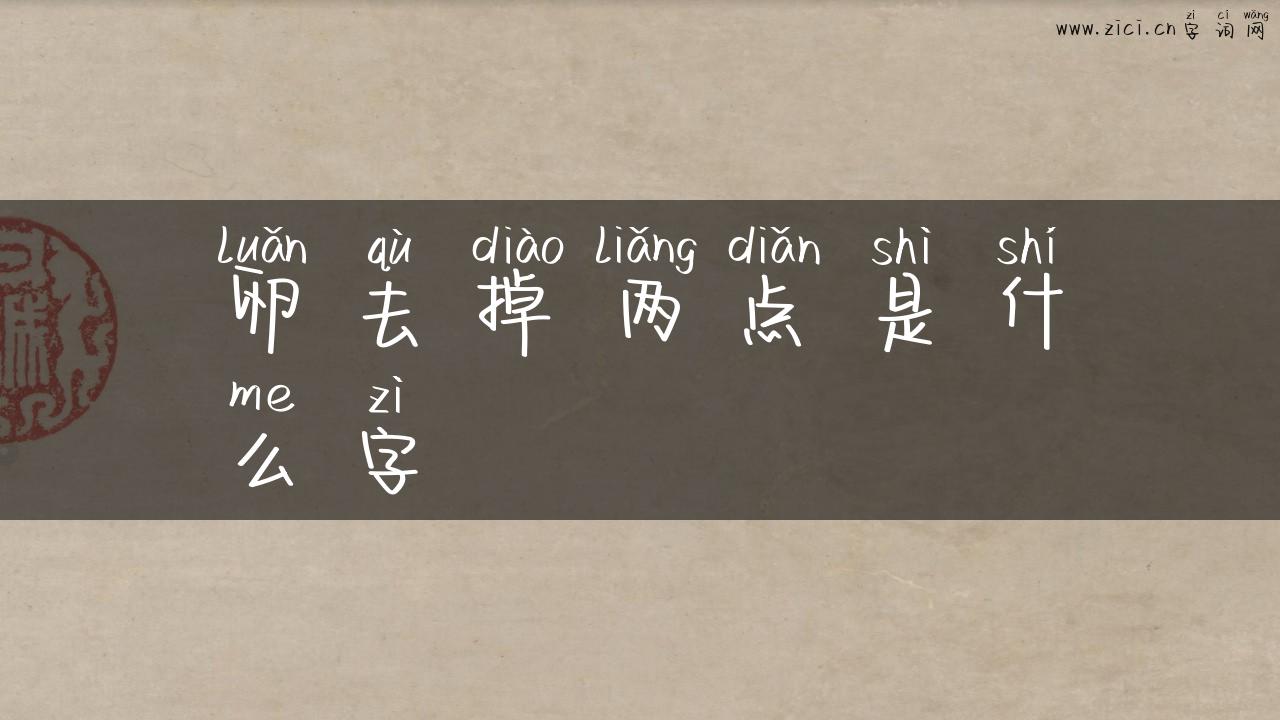 zì cí wǎng
www.zici.cn 字词网
luǎn qù diào liǎng diǎn shì shí
卵去掉两点是什
me zì
么字